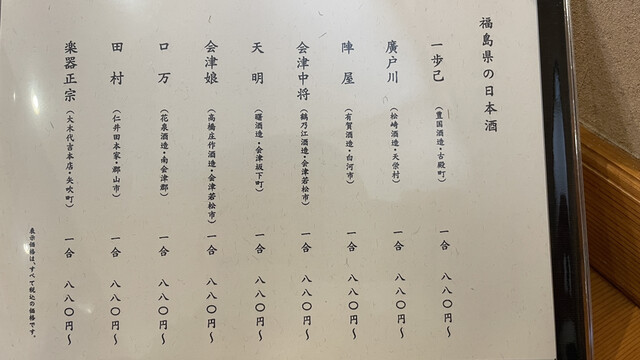 福島県の日本酒
一歩己（豊国酒造・古殿町）一合 八八〇円～
廣戸川（松崎酒造・天栄村）一合 八八〇円～
陣屋（有賀酒造・白河市）一合 八八〇円～
会津中将（鶴乃江酒造・会津若松市）一合 八八〇円～
天明（曙酒造・会津坂下町）一合 八八〇円～
会津娘（高橋庄作酒造・会津若松市）一合 八八〇円～
ロ万（花泉酒造・南会津郡）一合 八八〇円～
田村（仁井田本家・郡山市）一合 八八〇円～
楽器正宗（大木代吉本店・矢吹町）一合 八八〇円～
表示価格は、すべて税込の価格です。